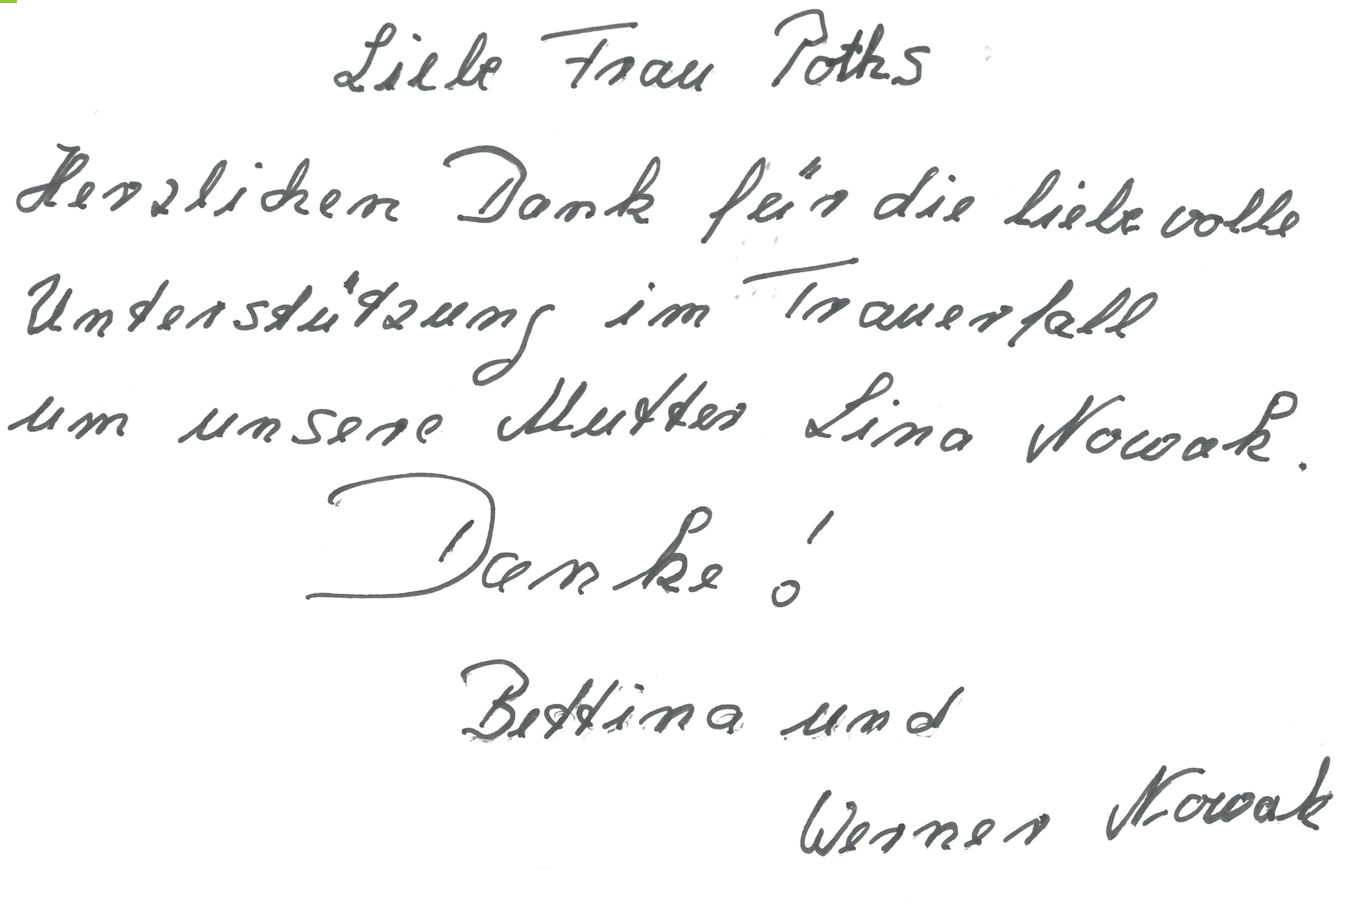 Liebe Frau Poths
Herzlichen Dank für die liebevolle
Unterstützung im Trauerfall
um unsere Mutter Lina Nowak.
Danke!
Bettina und
Werner Nowak